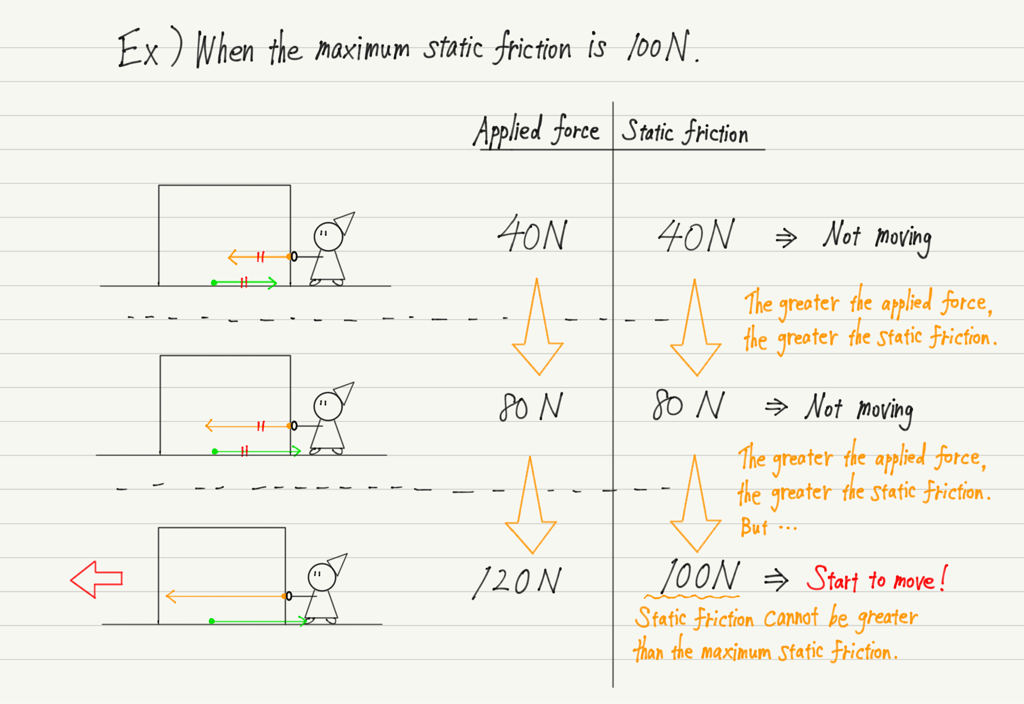 Ex) When the maximum static friction is 100N.
Applied force Static friction
40N 40N ⇒ Not moving
The greater the applied force,
the greater the static friction.
80N 80N ⇒ Not moving
The greater the applied force,
the greater the static friction.
But ...
120N 100N ⇒ Start to move!
Static friction cannot be greater
than the maximum static friction.